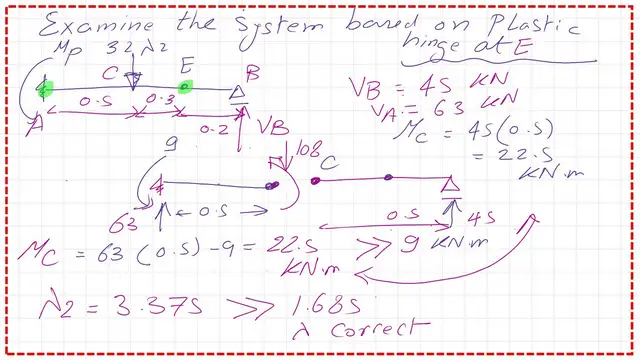 Examine the system based on Plastic
hinge at E
Mp 32 λ2
C E B
0.5 0.3
A 0.2 VB
VB = 45 KN
VA = 63 KN
Mc = 45 (0.5)
= 22.5
KN.m
9 108 C
63 0.5 0.5 45
KN.m
Mc = 63 (0.5) - 9 = 22.5 >> 9
KN.m
λ2 = 3.375 >> 1.685
λ correct